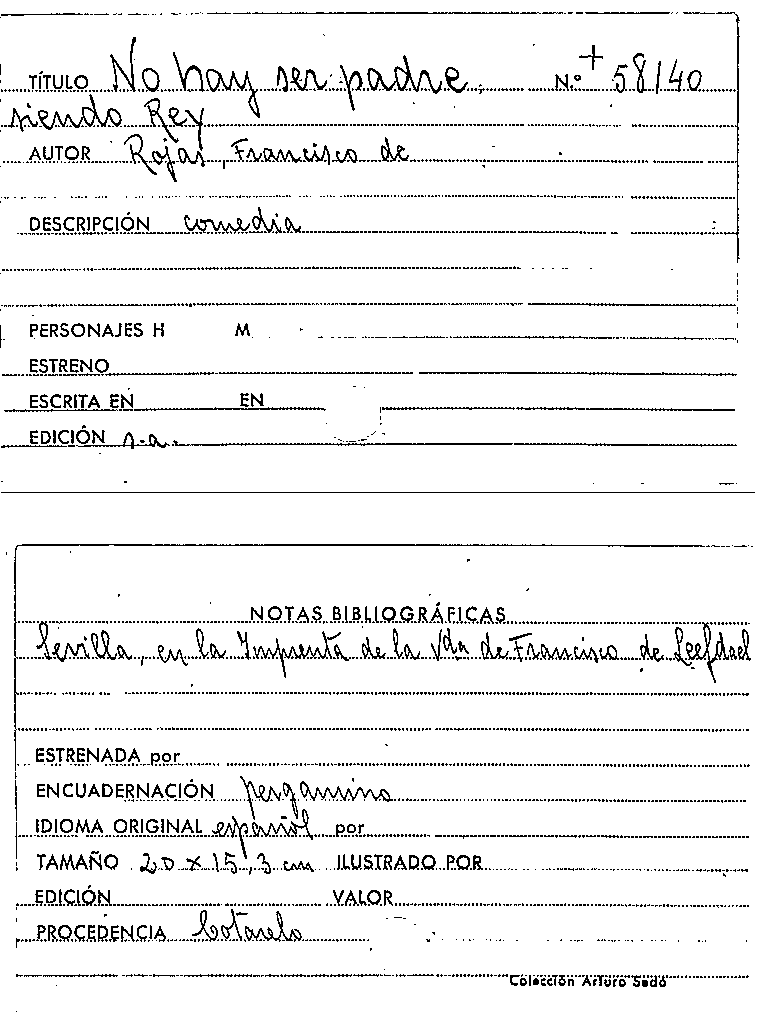 TÍTULO No hay ser padre N.º + 58140
siendo Rey
AUTOR Rojas, Francisco de
DESCRIPCIÓN comedia
PERSONAJES H M
ESTRENO
ESCRITA EN EN
EDICIÓN s.a.
NOTAS BIBLIOGRÁFICAS
Sevilla, en la Imprenta de la Vda de Francisco de Leefdael
ESTRENADA por
ENCUADERNACIÓN pergamino
IDIOMA ORIGINAL español por
TAMAÑO 20 x 15,3 cm ILUSTRADO POR
EDICIÓN VALOR
PROCEDENCIA Cotarelo
Colección Arturo Sedó